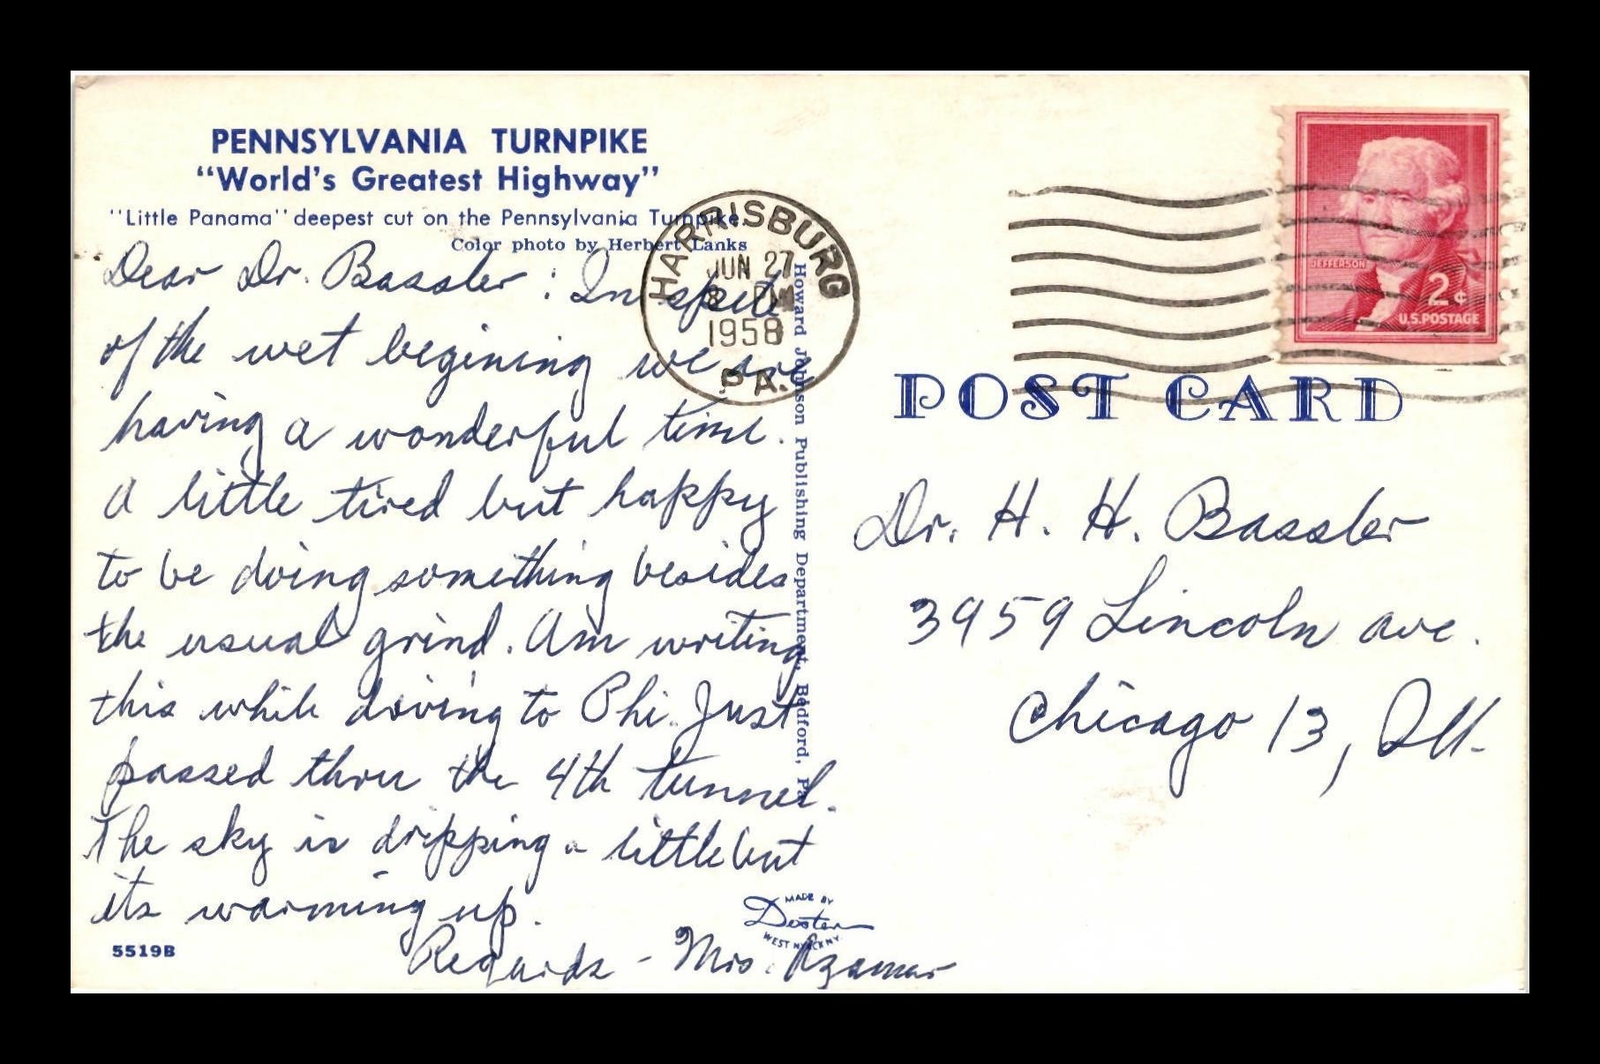 PENNSYLVANIA TURNPIKE
"World's Greatest Highway"
"Little Panama" deepest cut on the Pennsylvania Turnpike.
Color photo by Herbert Lanks
Dear Dr. Bassler : In spite
of the wet begining we are
having a wonderful time.
A little tired but happy
to be doing something besides
the usual grind. Am writing
this while driving to Phi. Just
passed thru the 4th tunnel.
The sky is dripping a little but
its warming up.
Regards - Mrs.
5519B
MADE BY
Dexter
WEST NYACK NY
Howard Johnson Publishing Department, Bedford, Pa.
HARRISBURG
JUN 27
PM
1958
PA.
JEFFERSON
2¢
U.S. POSTAGE
POST CARD
Dr. H. H. Bassler
3959 Lincoln Ave.
Chicago 13, Ill.